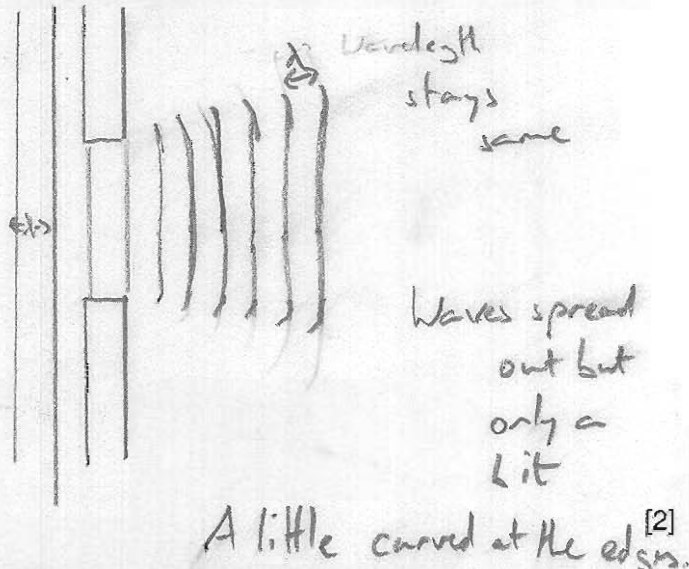 λ
Wavelegth
stays
same
λ
Waves spread
out but
only a
bit
[2]
A little curved at the edges.